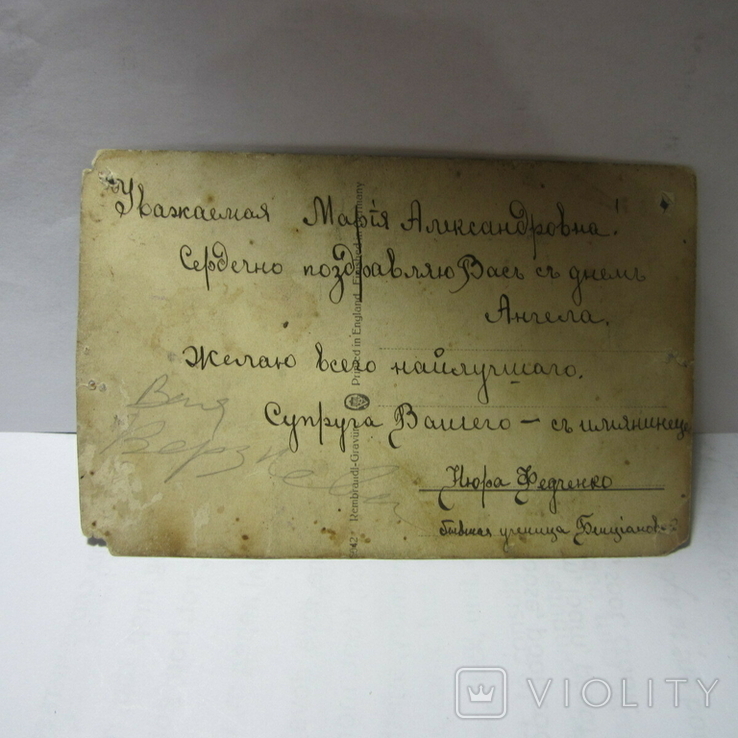 Уважаемая Марія Александровна!
Сердечно поздравляю Васъ съ днемъ
Ангела.
Желаю всего найлучшаго.
Супруга Вашего – съ имянинецей
Нюра Федченко
бывшая ученица
Веня
5421 Rembrandt-Gravure Printed in England Finished in Germany
VIOLITY